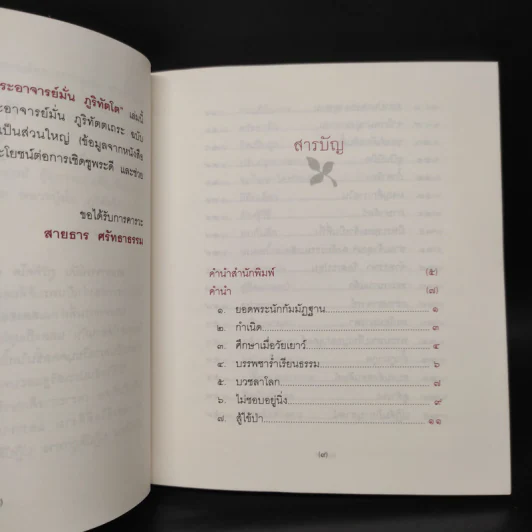 ระอาจารย์มั่น ภูริทัตโต" เล่มนี้
ะอาจารย์มั่น ภูริทัตตเถระ ฉบับ
เป็นส่วนใหญ่ (ข้อมูลจากหนังสือ
ะโยชน์ต่อการเชิดชูพระดี และช่วย
ขอได้รับการคารวะ
สายธาร ศรัทธาธรรม
สารบัญ
คำนำสำนักพิมพ์ (๕)
คำนำ (๗)
๑. ยอดพระนักกัมมัฏฐาน ๑
๒. กำเนิด ๓
๓. ศึกษาเมื่อวัยเยาว์ ๔
๔. บรรพชาร่ำเรียนธรรม ๖
๕. บวชลาโลก ๗
๖. ไม่ชอบอยู่นิ่ง ๙
๗. สู้ใช้ป่า ๑๑